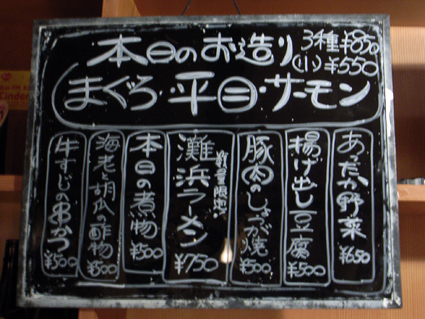 本日のお造り 3種¥850
(小)¥550
まぐろ・平目・サーモン
あったか野菜 ¥650
揚げ出し豆腐 ¥500
豚肉のしょうが焼 ¥500
数量限定!
灘浜ラーメン ¥750
本日の煮物 ¥500
海老と胡瓜の酢物 ¥500
牛すじの串かつ ¥500